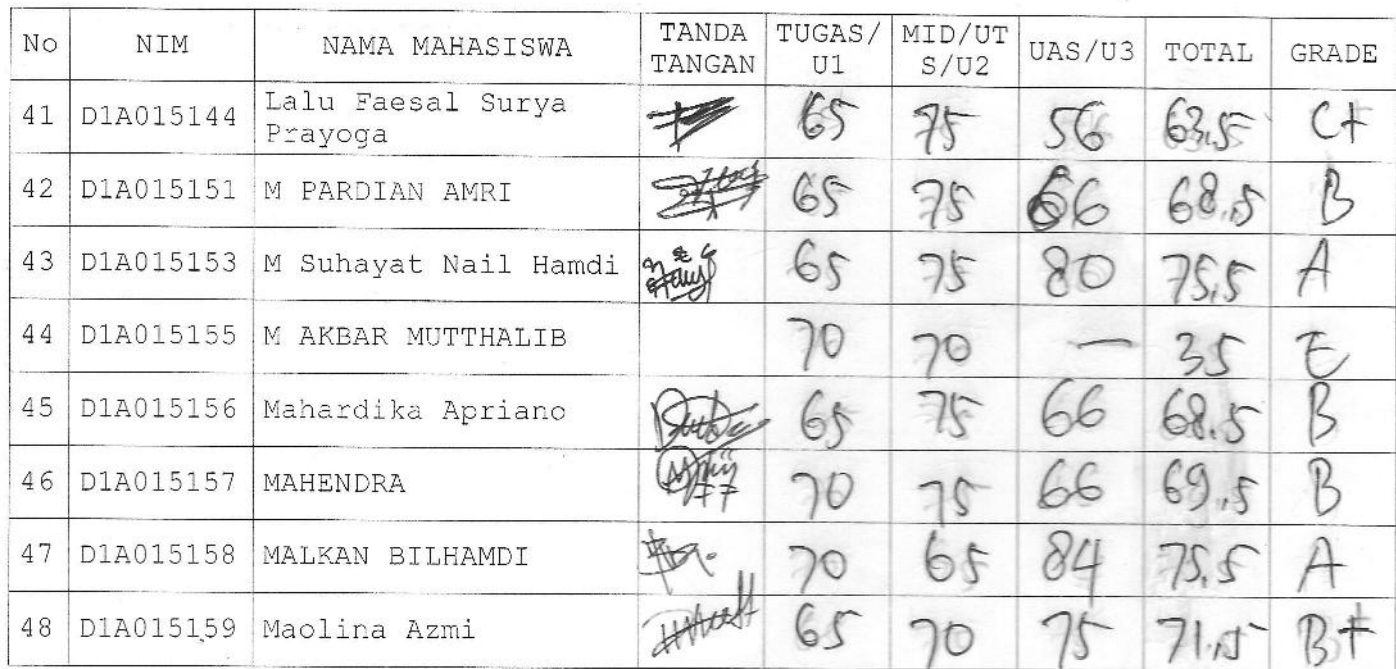 No NIM NAMA MAHASISWA TANDA TANGAN TUGAS/U1 MID/UTS/U2 UAS/U3 TOTAL GRADE
41 D1A015144 Lalu Faesal Surya Prayoga 65 75 56 63,5 C+
42 D1A015151 M PARDIAN AMRI 65 75 66 68.5 B
43 D1A015153 M Suhayat Nail Hamdi 65 75 80 75,5 A
44 D1A015155 M AKBAR MUTTHALIB 70 70 — 35 E
45 D1A015156 Mahardika Apriano 65 75 66 68.5 B
46 D1A015157 MAHENDRA 70 75 66 69.5 B
47 D1A015158 MALKAN BILHAMDI 70 65 84 75.5 A
48 D1A015159 Maolina Azmi 65 70 75 71.5 B+